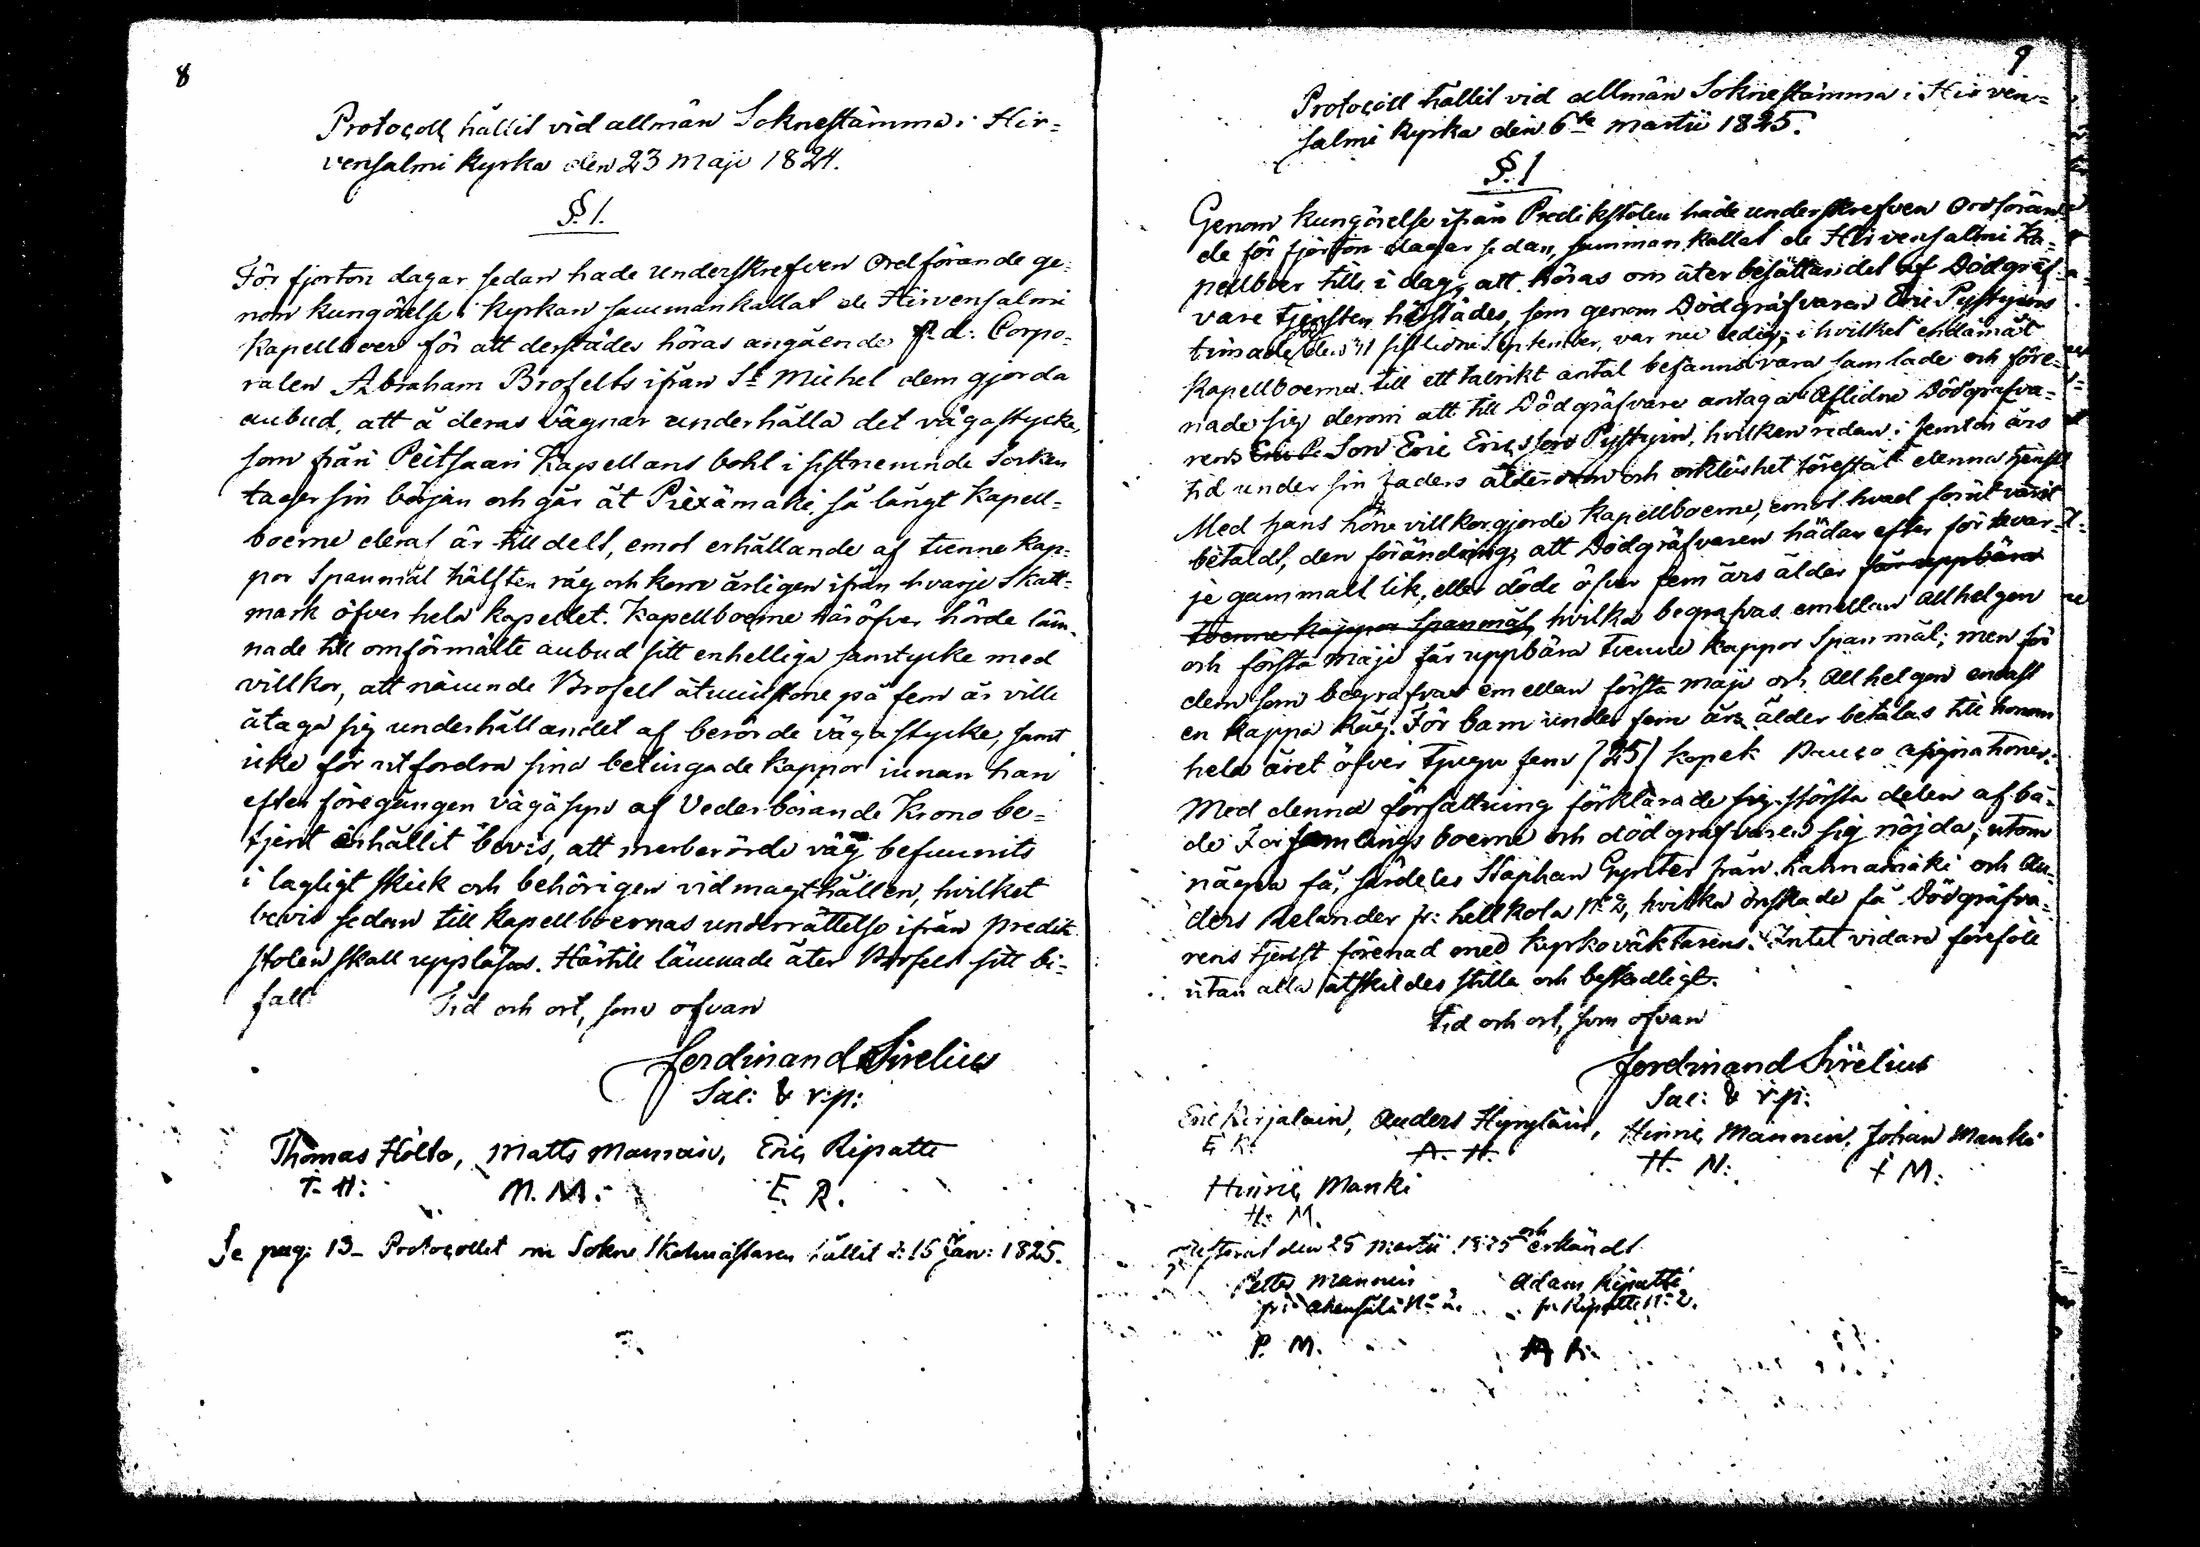 8
Protocoll hållit vid allmän Sokne stämma i Hir=
vensalmi kyrka den 23 Maji 1824.
§. 1.
För fjorton dagar sedan hade underskrefven Ordförande ge=
nom kungörelse i kyrkan sammankallat de Hirvensalmi
Kapellboer för att derstädes höras angående f. d: Corpo=
ralen Abraham Brofelts ifrån St Michel dem gjorda
anbud, att å deras vägnar underhålla det vägastycke,
som från Peitsaari Kapellans bohl i sistnemnde Socken
tager sin början och går åt Piexämäki, så långt Kapell=
boerne deraf är tilldelt, emot erhållande af tvenne kap=
por Spanmål hälften råg och korn årligen ifrån hvarje Skatt=
mark öfver hela kapellet. Kapellboerne häröfver hörde läm=
nade till omförmälte anbud sitt enhelliga samtycke med
villkor, att nämnde Brofelt åtminstone på fem år ville
åtaga sig underhållandet af berörde vägastycke, samt
icke för utfordra sina betingade kappor innan han
efter föregången vägasyn af Vederbörande Krono be=
tjent erhållit bevis, att merberörde väg befunnits
i lagligt skick och behörigen vidmagthållen, hvilket
bevis sedan till kapellboernas underrättelse ifrån predik
stolen skall uppläsas. Härtill lämnade åter Brofelt sitt bi=
fall
Tid och ort, som ofvan
Ferdinand Sirelius
Sac: & v.p:
Thomas Hölta, Matts Mannain, Eric Ripatte
T. H: M. M: E. R.
Se pag: 13_ Protocollet om Sokne Skolmästaren hållit d: 16 Jan: 1825.
9
Protocoll hållit vid allmän Sokne stämma i Hirven=
salmi kyrka den 6te Martii 1825.
§. 1
Genom kungörelse ifrån Predikstolen hade underskrefven Ordföran
de för fjorton dagar sedan, sammankallat de Hirvensalmi Ka=
pellboer till i dag, att höras om återbesättandet af Dödgräf=
vare tjensten härstädes, som genom Dödgräfvaren Eric Pystynens
timade död den 11 sistlidne September, var nu ledig; i hvilket ändamål
Kapellboerne till ett talrikt antal befanns vara samlade och före=
nade sig derom att till Dödgräfvare antaga Aflidne Dödgräfva=
rens Son Eric Ericsson Pystyin, hvilken redan i femton års
tid under sin Faders ålderdom och orkeslöshet förestått denna tjenst
Med hans hörde villkor gjorde Kapellboerne, emot hvad förut varit
betaldt, den förändring, att Dödgräfvaren hädan efter för hvar=
je gammalt lik, eller döde öfver fem års ålder får uppbära
tvenne kappor Spanmål, hvilka begrafvas emellan Allhelgon
och första Maji får uppbära tvenne kappor Spanmål; men för
dem som begrafvas emellan första Maji och Allhelgon endast
en kappa Råg. För barn under fem års ålder betalas till honom
hela året öfver tjugu fem (25) kopek Banco assignationer.
Med denna författning förklarade sig största delen af bå=
de Församlingsboerne och dödgräfvaren sig nöjda; utom
några få, särdeles Staphan Gynter från Hahnamäki och An=
ders Relander fr: Hellkola No 2, hvilka önskade få Dödgräfva=
rens tjenst förenad med kyrkoväktarens. Intet vidare föreföll
utan alla åtskildes stilla och beskedligt.
Tid och ort, som ofvan
Ferdinand Sirelius
Sac: & v.p:
Eric Kirjalain, Anders Hyryläin, Hinric Mannin, Johan Manki
E. K. A. H. H. M: + M:
Hinric Manki
H. M.
den 25 Martii 1825 och erkändt
Petter Mannin Adam Ripatti
fr: fr. Ripatti No 2.
P. M. A R: